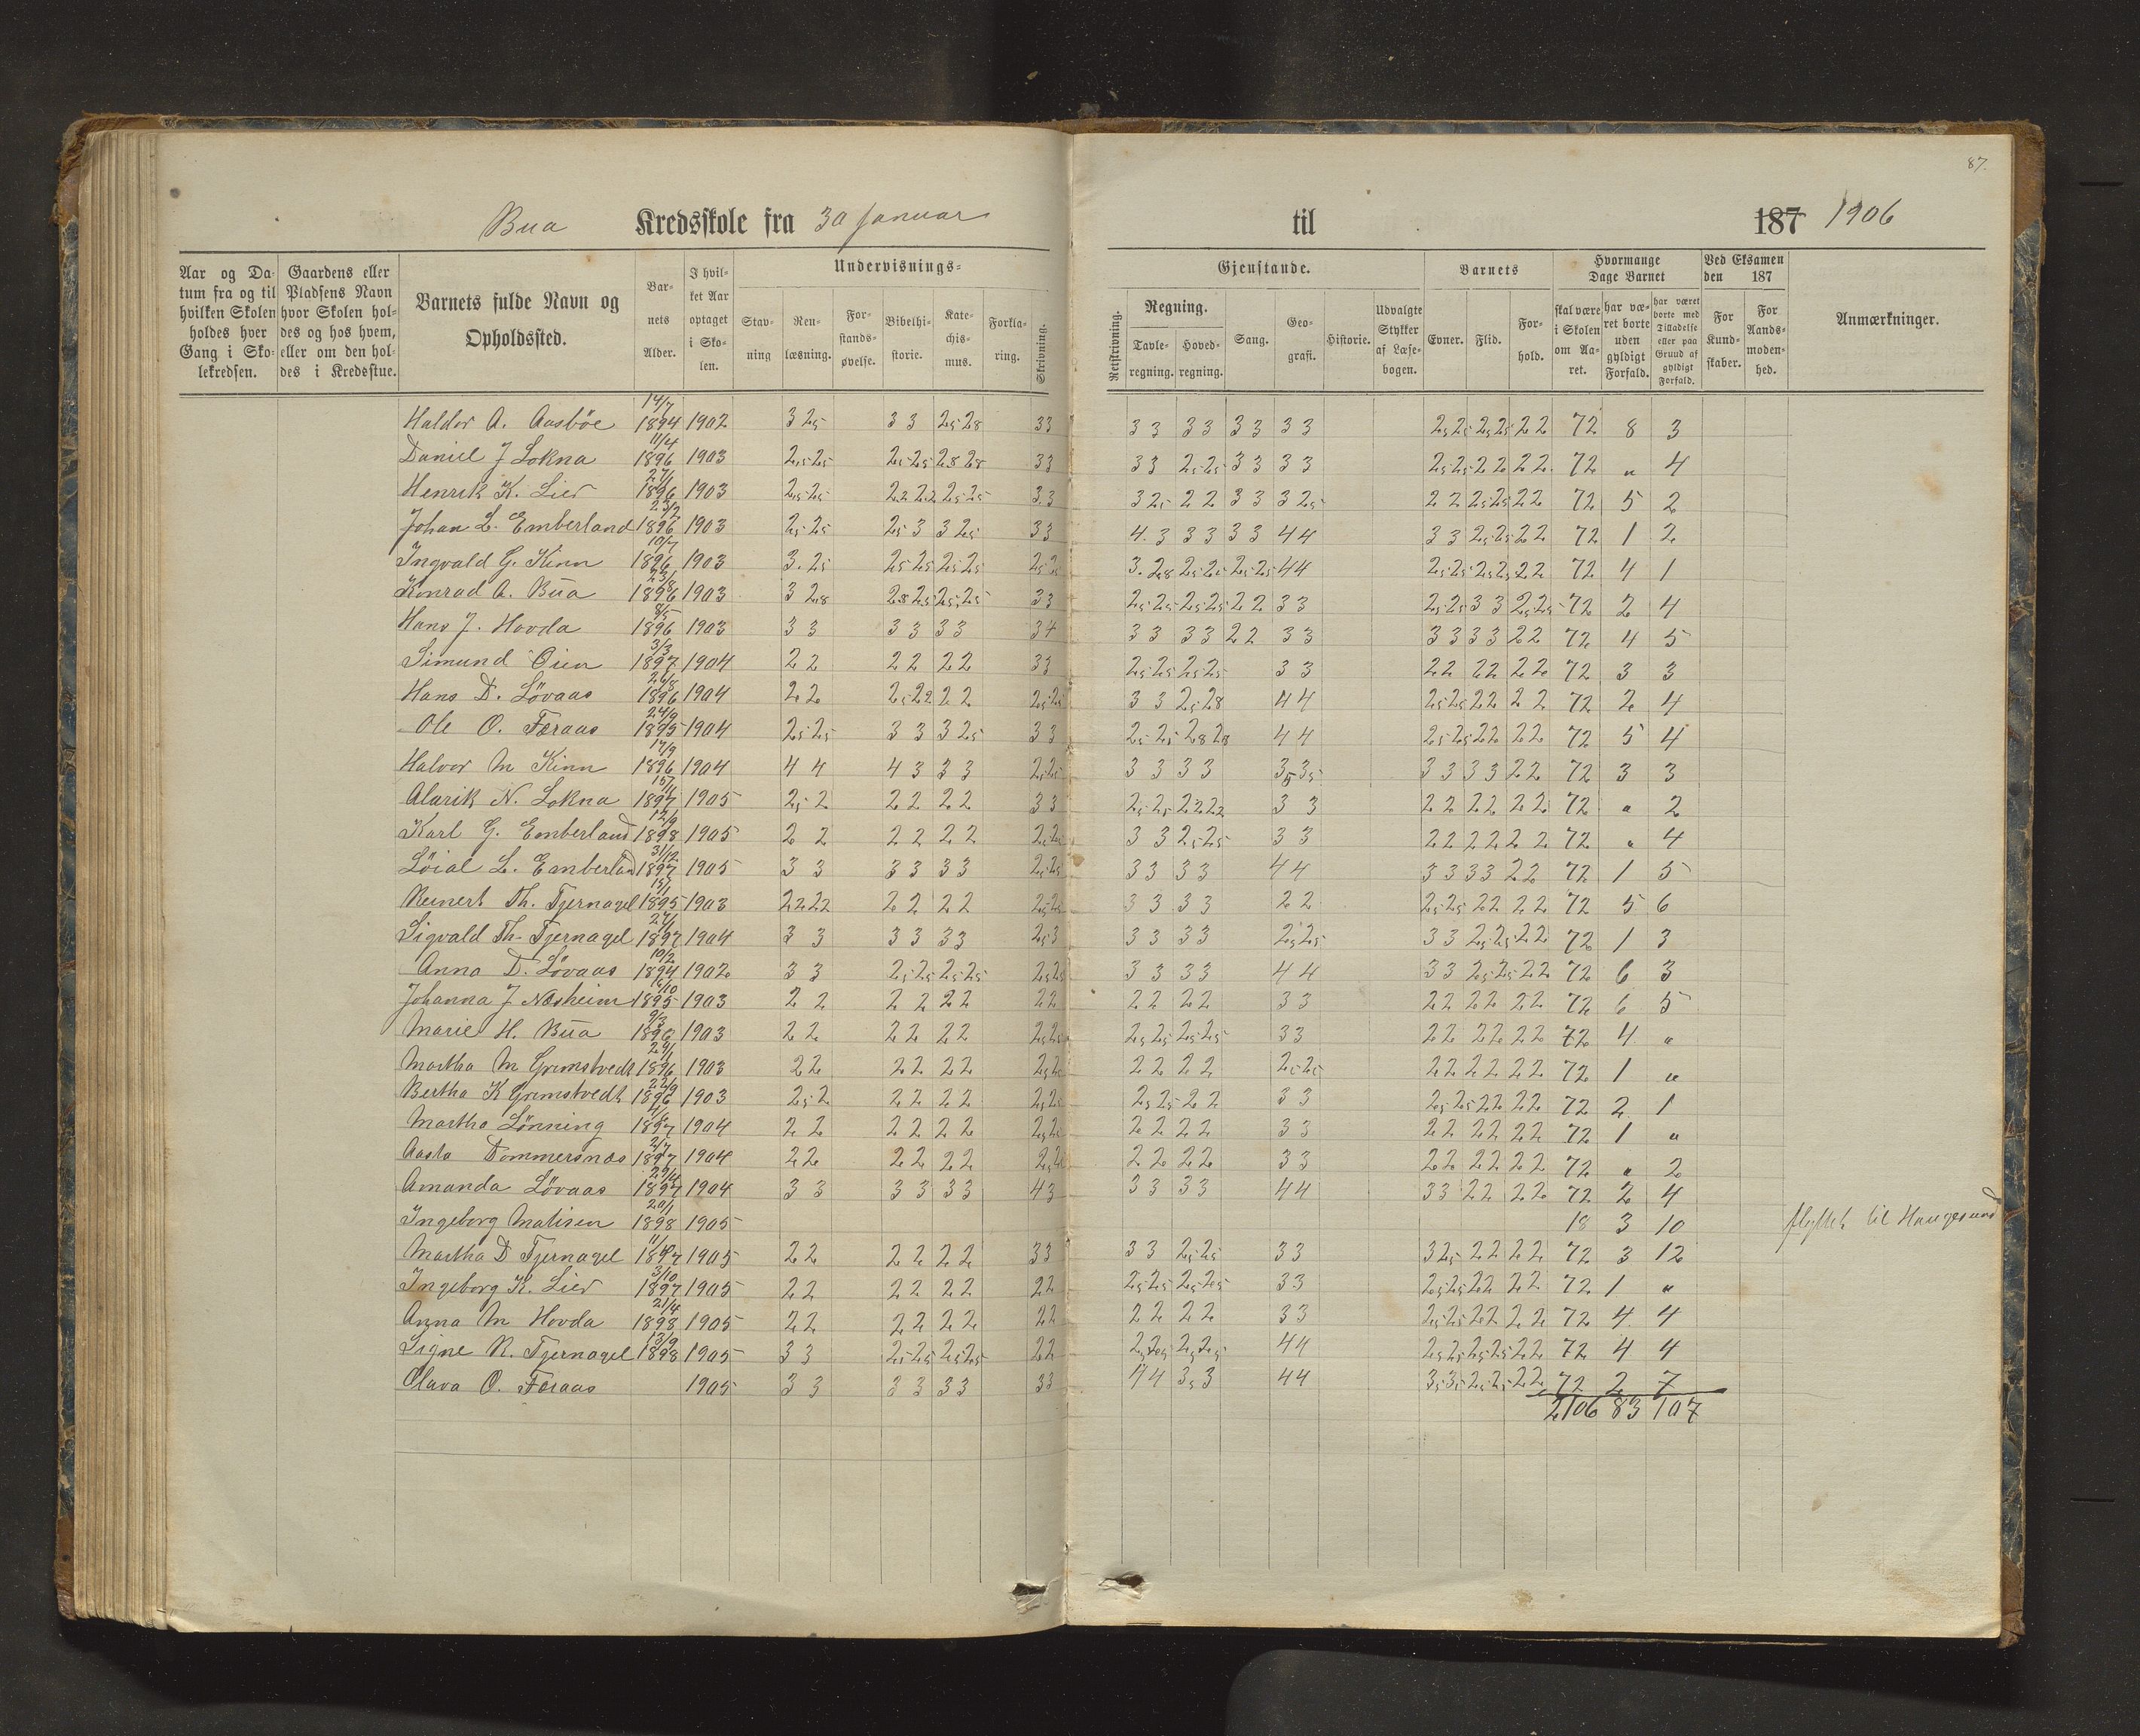 87.
Bua Kredsskole fra 30 Januar til 187 1906
Aar og Datum fra og til hvilken Skolen holdes hver Gang i Skolekredsen.
Gaardens eller Pladsens Navn hvor Skolen holdes og hos hvem, eller om den holdes i Kredsstue.
Barnets fulde Navn og Opholdssted.
Barnets Alder.
I hvilket Aar optaget i Skolen.
Undervisnings-
Stavning
Renlæsning.
Forstandsøvelse.
Bibelhistorie.
Katechismus.
Forklaring.
Skrivning.
Gjenstande.
Retskrivning.
Regning.
Tavleregning.
Hovedregning.
Sang.
Geografi.
Historie.
Udvalgte Stykker af Læsebogen.
Barnets
Evner.
Flid.
Forhold.
Hvormange Dage Barnet
skal være i Skolen om Aaret.
har været borte uden gyldigt Forfald.
har været borte med Tilladelse eller paa Grund af gyldigt Forfald.
Ved Eksamen den 187
For Kundskaber.
For Aandsmodenhed.
Anmærkninger.
Haldor A. Aasböe 14/7 1894 1902 3 2,5 3 3 2,5 2,8 3 3 3 3 3 3 3 3 3 3 2,5 2,5 2,5 2,5 2 2 72 8 3
Daniel J Lokna 11/4 1896 1903 2,5 2,5 2,5 2,5 2,8 2,8 3 3 3 3 2,5 2,5 3 3 3 3 2,5 2,5 2 2 2 2 72 " 4
Henrik K. Lier 27/1 1896 1903 2,5 2,5 2,2 2,2 2,5 2,5 3 3 3 2,5 2 2 3 3 3 2,5 2 2 2,5 2,5 2 2 72 5 2
Johan L. Emberland 23/2 1896 1903 2,5 2,5 2,5 3 3 2,5 3 3 4 3 3 3 3 3 4 4 3 3 2,5 2,5 2 2 72 1 2
Ingvald G. Kinn 10/7 1896 1903 3 2,5 2,5 2,5 2,5 2,5 3 2,8 2,5 2,5 2,5 2,5 4 4 2,5 2,5 2,5 2,5 2 2 72 4 1
Konrad A. Bua 1896 1903 3 2,8 2,8 2,5 2,5 2,5 3 3 2,5 2,5 2,5 2,5 2 2 3 3 2,5 2,5 3 3 2,5 2,5 72 2 4
Hans J. Hovda 8/5 1896 1903 3 3 3 3 3 3 3 4 3 3 3 3 2 2 3 3 3 3 3 3 2 2 72 4 5
Simund Öien 3/3 1897 1904 2 2 2 2 2 2 3 3 2,5 2,5 2,5 2,5 3 3 2 2 2 2 2 2 72 3 3
Hans D. Lövaas 26/8 1896 1904 2 2 2,5 2,2 2 2 2,5 2,5 3 3 2,5 2,8 4 4 2,5 2,5 2 2 2 2 72 2 4
Ole O. Færaas 24/9 1895 1904 2,5 2,5 3 3 3 2,5 3 3 2,5 2,5 2,8 2,8 4 4 2,5 2,5 2 2 2 2 72 5 4
Halvor M Kinn 17/9 1896 1904 4 4 4 3 3 3 2,5 2,5 3 3 3 3 3,5 3,5 3 3 3 3 2 2 72 3 3
Alarik N. Lokna 1897 1905 2,5 2 2 2 2 2 3 3 2,5 2,5 2,2 2,2 3 3 2 2 2 2 2 2 72 " 2
Karl G. Emberland 12/9 1898 1905 2 2 2 2 2 2 2,5 2,5 3 3 2,5 2,5 3 3 2 2 2 2 2 2 72 " 4
Löial L. Emberland 31/12 1897 1905 3 3 3 3 3 3 2,5 2,5 3 3 3 3 4 4 3 3 3 3 2 2 72 1 5
Reinert Th. Tjernagel 1895 1903 2,2 2,2 2 2 2 2 2,5 2,5 3 3 3 3 2 2 2,5 2,5 2 2 2 2 72 5 6
Sigvald Th. Tjernagel 27/1 1897 1904 3 3 3 3 3 3 2,5 3 3 3 3 3 2,5 2,5 3 3 2,5 2,5 2 2 72 1 3
Anna D. Lövaas 10/2 1894 1902 3 3 2,5 2,5 2,5 2,5 2,5 2,5 3 3 3 3 4 4 3 3 2,5 2,5 2 2 72 6 3
Johanna J Næsheim 1895 1903 2 2 2 2 2 2 2 2 2 2 2 2 3 3 2 2 2 2 2 2 72 6 5
Marie H. Bua 9/3 1896 1903 2 2 2 2 2 2 2,5 2,5 2,5 2,5 2,5 2,5 3 3 2 2 2 2 2 2 72 4 "
Martha M Grimstvedt 1896 1903 2 2 2 2 2 2 2 2 2 2 2,5 2,5 2 2 2 2 2 2 72 1 "
Bertha K Grimstvedt 22/9 1896 1903 2,5 2 2 2 2 2 2,5 2,5 2,5 2,5 2 2 3 3 2,5 2,5 2 2 2 2 72 2 1
Martha Lönning 1897 1904 2 2 2 2 2 2 2 2 2 2 3 3 2 2 2 2 2 2 72 1 "
Aasta Dommersnæs 2/7 1897 1904 2 2 2 2 2 2 2 2 2 2 3 3 2 2 2 2 2 2 72 " 2
Amanda Lövaas 1897 1904 3 3 3 3 3 3 4 3 3 3 3 3 4 4 3 3 2 2 2 2 72 2 4
Ingeborg Matisen 20/1 1898 1905 18 3 10 flyttet til Haugesund
Martha D Tjernagel 1897 1905 2 2 2 2 2 2 3 3 3 3 2,5 2,5 3 3 3 2,5 2 2 2 2 72 3 12
Ingeborg K. Lier 3/10 1897 1905 2 2 2 2 2 2 2 2 2,5 2,5 2,5 2,5 3 3 2,5 2,5 2 2 2 2 72 1 "
Anna M Hovda 21/4 1898 1905 2 2 2 2 2 2 2 2 2 2 2 2 3 3 2,5 2,5 2 2 2 2 72 4 4
Signe R. Tjernagel 13/9 1898 1905 3 3 2,5 2,5 2,5 2,5 2 2 2,5 2,5 2,5 2,5 4 4 2,5 2,5 2,5 2,5 2 2 72 4 4
Olava O. Færaas 1905 3 3 3 3 3 3 3 3 4 4 3,5 3 4 4 3,5 3,5 2,5 2,5 2 2 72 2 7
2106 83 107